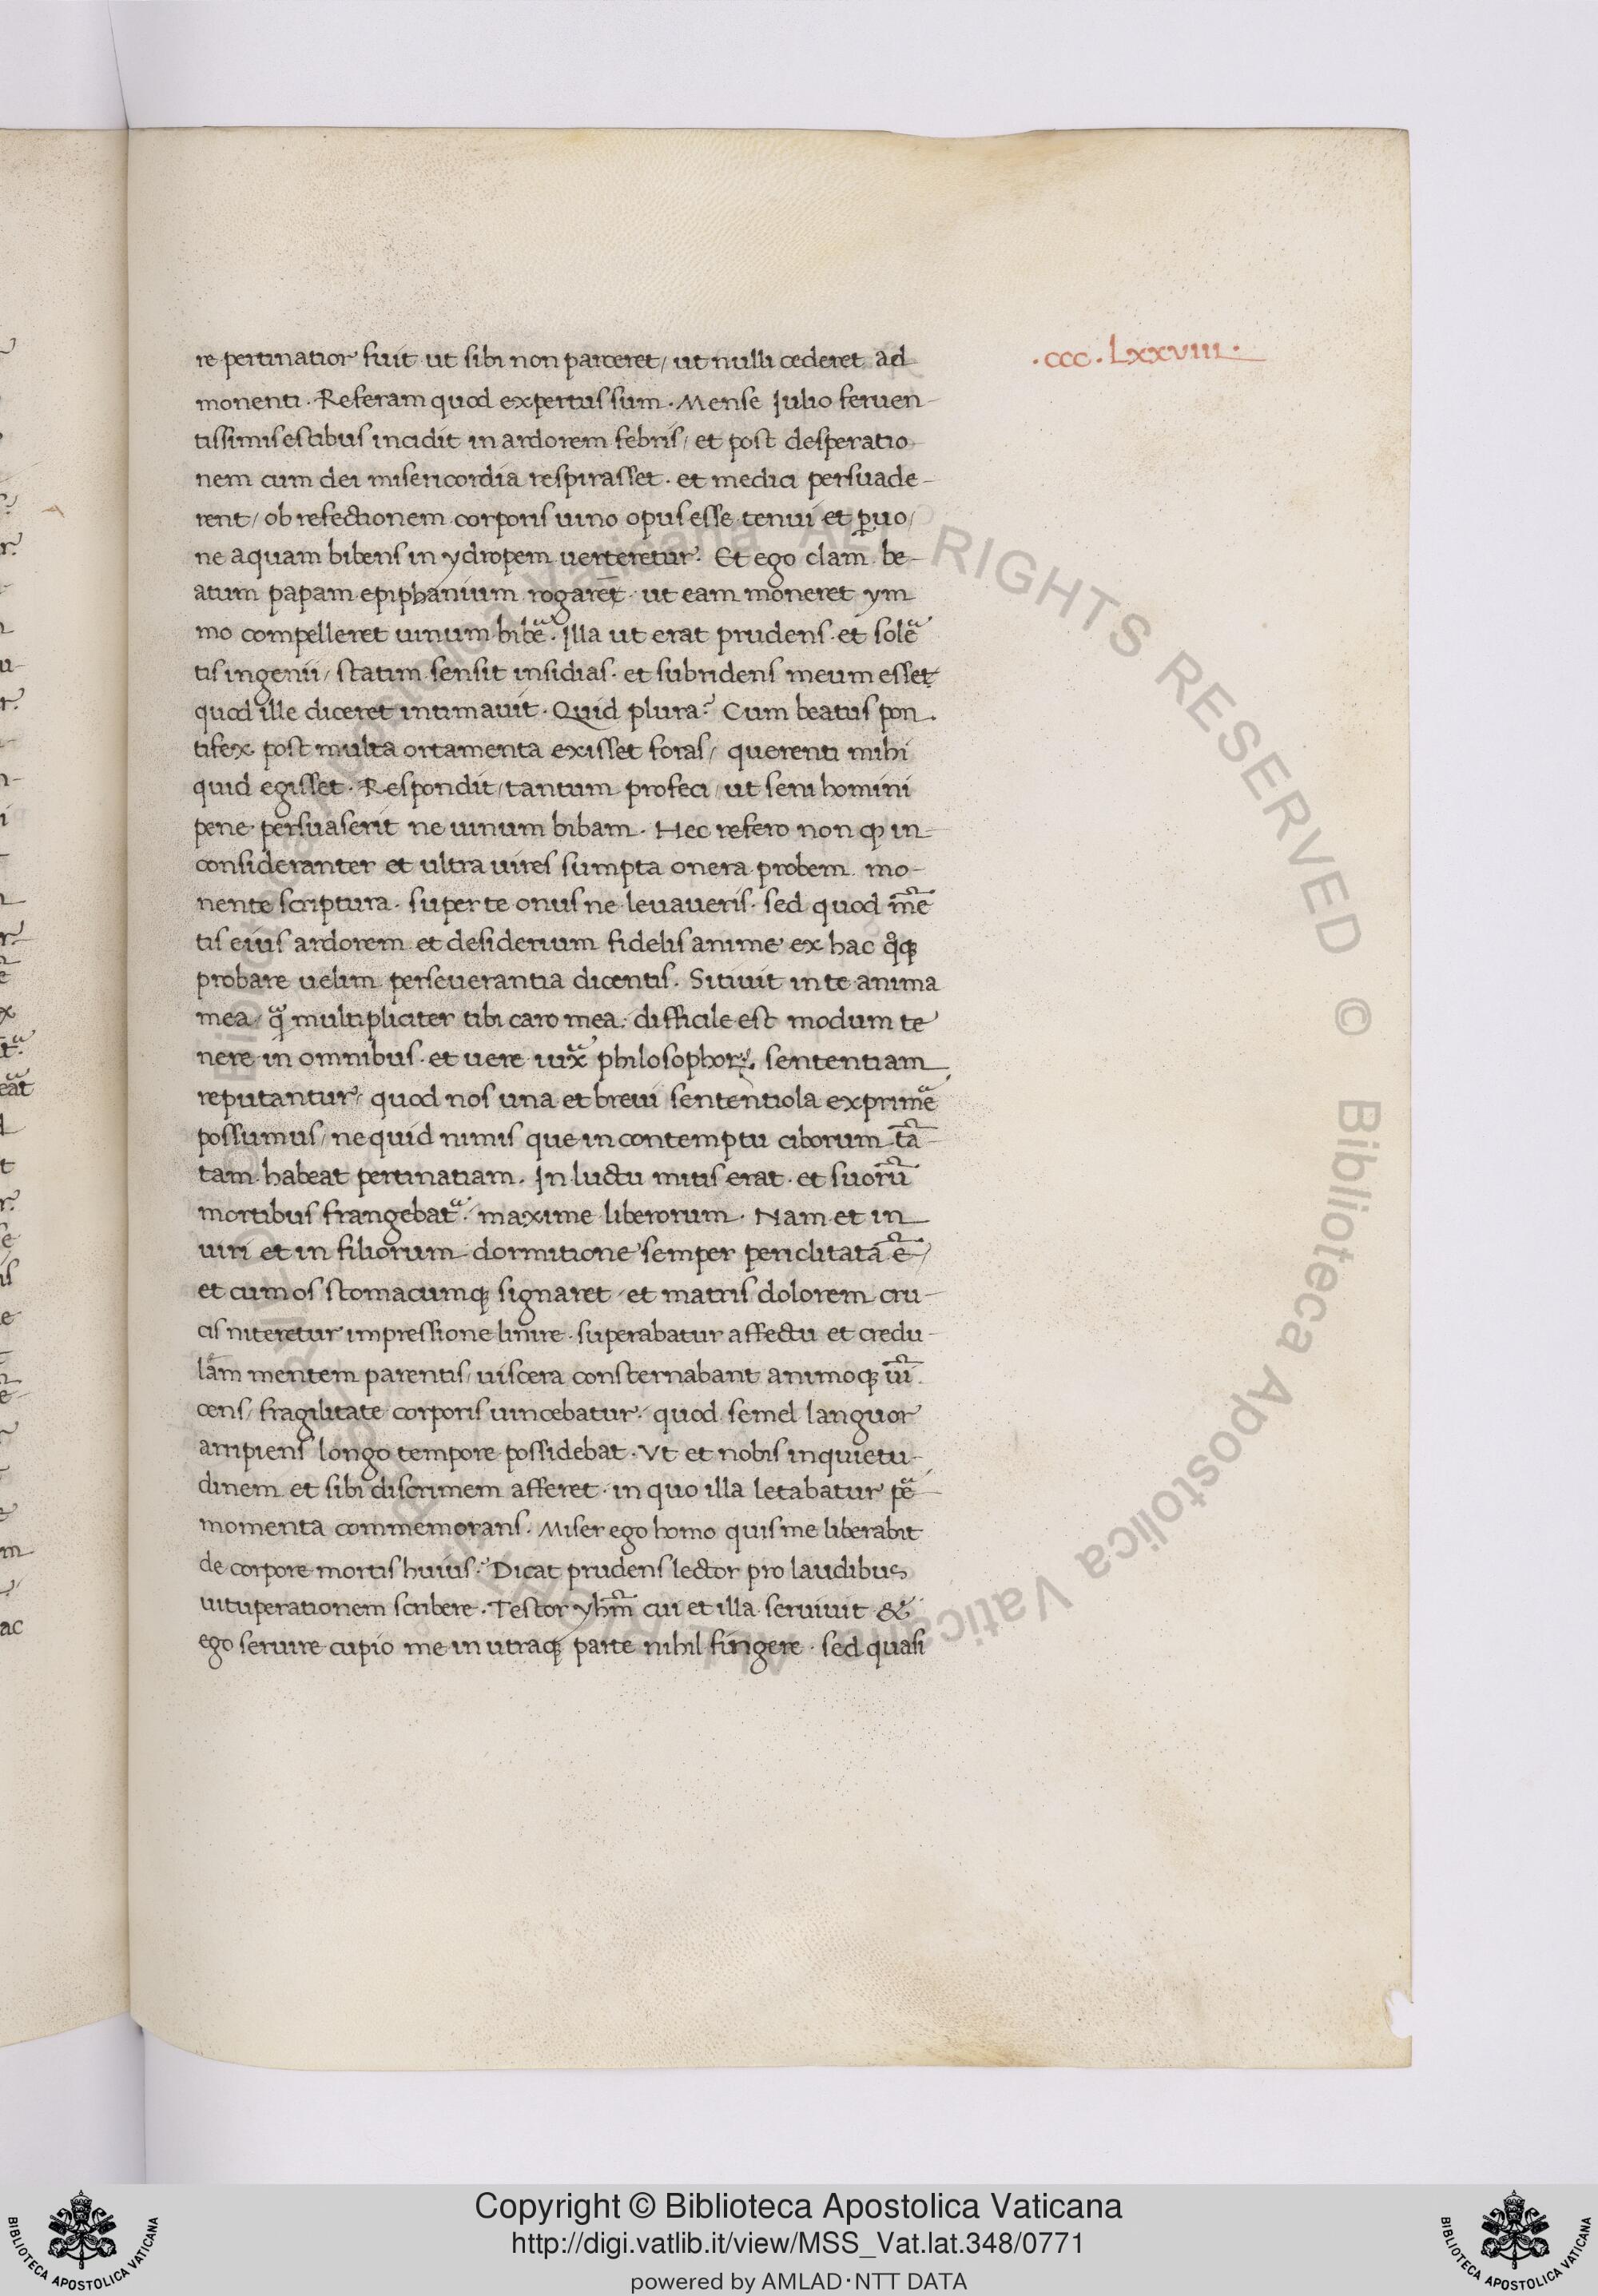 .ccc.Lxxviii.
re pertinatior fuit ut sibi non parceret/ ut nulli cederet ad
monenti. Referam quod expertus sum. Mense Julio feruen-
tissimis estibus incidit in ardorem febris/ et post desperatio-
nem cum dei misericordia respirasset. et medici persuade-
rent/ ob refectionem corporis uino opus esse tenui et ꝑuo/
ne aquam bibens in ydropem uerteretur. Et ego clam be-
atum papam epiphanium rogarem ut eam moneret ym
mo compelleret uinum bibē. Illa ut erat prudens. et solē
tis ingenii/ statim sensit insidias. et subridens meum esset
quod ille diceret intimavit. Quid plura? Cum beatus pon.
tifex post multa ortamenta exisset foras/ querenti mihi
quid egisset. Respondit/ tantum profeci/ ut seni homini
pene persuaserit ne uinum bibam. Hec refero non ꝙ in-
consideranter et ultra uires sumpta onera probem mo-
nente scriptura. super te onus ne levaveris. sed quod mē
tis eius ardorem et desiderium fidelis anime ex hac qͦqꝫ
probare uelim perseuerantia dicentis. Sitivit in te anima
mea/ qᷓ multipliciter tibi caro mea. difficile est modum te
nere in omnibus. et uere iuxᷓ philosophoꝝ. sententiam
reputantur/ quod nos una et brevi sententiola exprimē
possumus/ ne quid nimis que in contemptu ciborum tā-
tam habeat pertinatiam. In luctu mitis erat. et suorū
mortibus frangebatᷓ. maxime liberorum. Nam et in
uiri et in filiorum dormitione semper periclitata ē/
et cum os stomacumqꝫ signaret/ et matris dolorem cru-
cis niteretur impressione linire. superabatur affectu et credu-
lam mentem parentis/ uiscera consternabant animoqꝫ uī
cens/ fragilitate corporis uincebatur. quod semel languor
arripiens longo tempore possidebat. Vt et nobis inquietu-
dinem et sibi discrimem afferet. in quo illa letabatur pē
momenta commemorans. Miser ego homo quis me liberabit
de corpore mortis huius? Dicat prudens lector pro laudibus
uituperationem scribere. Testor yhm̄ cui et illa servivit &
ego servire cupio me in utraqꝫ parte nihil fingere. sed quasi
Copyright © Biblioteca Apostolica Vaticana
http://digi.vatlib.it/view/MSS_Vat.lat.348/0771
powered by AMLAD·NTT DATA
BIBLIOTECA APOSTOLICA VATICANA
BIBLIOTECA APOSTOLICA VATICANA